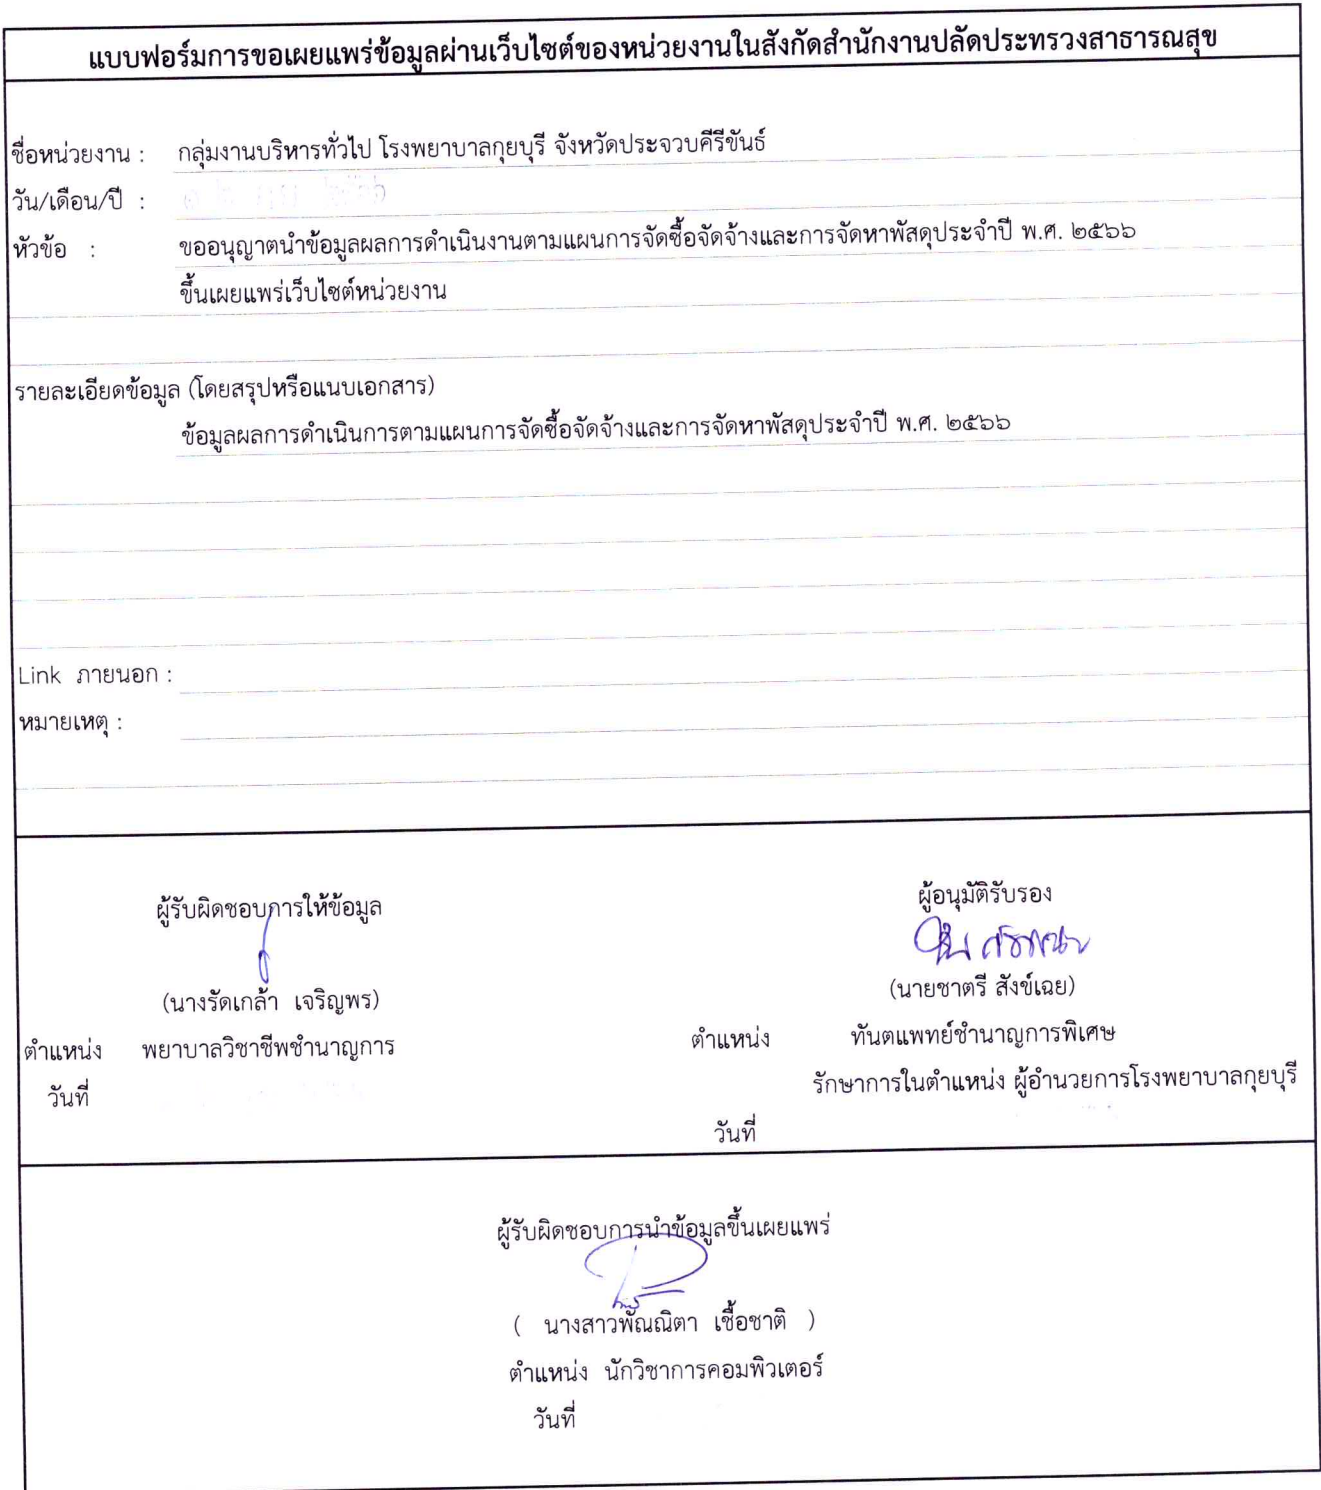 แบบฟอร์มการขอเผยแพร่ข้อมูลผ่านเว็บไซต์ของหน่วยงานในสังกัดสำนักงานปลัดประทรวงสาธารณสุข
ชื่อหน่วยงาน : กลุ่มงานบริหารทั่วไป โรงพยาบาลกุยบุรี จังหวัดประจวบคีรีขันธ์
วัน/เดือน/ปี :
หัวข้อ : ขออนุญาตนำข้อมูลผลการดำเนินงานตามแผนการจัดซื้อจัดจ้างและการจัดหาพัสดุประจำปี พ.ศ. ๒๕๖๖
ขึ้นเผยแพร่เว็บไซต์หน่วยงาน
รายละเอียดข้อมูล (โดยสรุปหรือแนบเอกสาร)
ข้อมูลผลการดำเนินการตามแผนการจัดซื้อจัดจ้างและการจัดหาพัสดุประจำปี พ.ศ. ๒๕๖๖
Link ภายนอก :
หมายเหตุ :
ผู้รับผิดชอบการให้ข้อมูล
(นางรัดเกล้า เจริญพร)
ตำแหน่ง พยาบาลวิชาชีพชำนาญการ
วันที่
ผู้อนุมัติรับรอง
(นายชาตรี สังข์เฉย)
ตำแหน่ง ทันตแพทย์ชำนาญการพิเศษ
รักษาการในตำแหน่ง ผู้อำนวยการโรงพยาบาลกุยบุรี
วันที่
ผู้รับผิดชอบการนำข้อมูลขึ้นเผยแพร่
( นางสาวพัณณิตา เชื้อชาติ )
ตำแหน่ง นักวิชาการคอมพิวเตอร์
วันที่